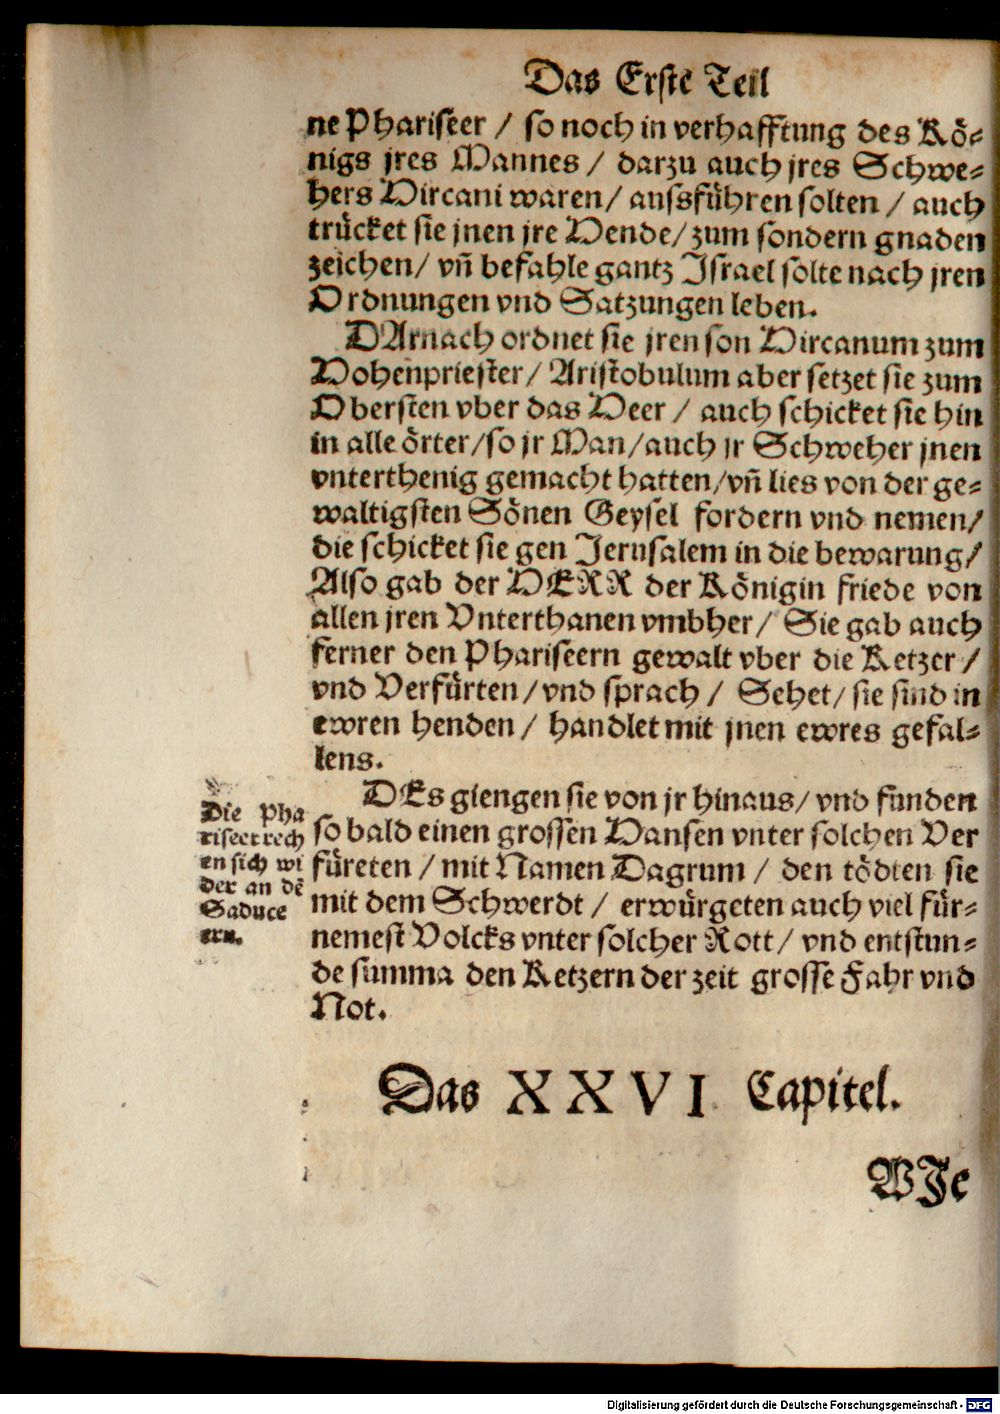 Das Erste Teil
ne Phariseer / so noch in verhafftung des Kö⸗
nigs jres Mannes / darzu auch jres Schwe⸗
hers Hircani waren / aussführen solten / auch
trücket sie jnen jre Hende / zum sondern gnaden
zeichen / vñ befahle gantz Israel solte nach jren
Ordnungen vnd Satzungen leben.
DArnach ordnet sie jren son Hircanum zum
Hohenpriester / Aristobulum aber setzet sie zum
Obersten vber das Heer / auch schicket sie hin
in alle örter / so jr Man / auch jr Schweher jnen
vnterthenig gemacht hatten / vñ lies von der ge⸗
waltigsten Sönen Geysel fordern vnd nemen /
die schicket sie gen Jerusalem in die bewarung /
Also gab der HERR der Königin friede von
allen jren Vnterthanen vmbher / Sie gab auch
ferner den Phariseern gewalt vber die Ketzer /
vnd Verfürten / vnd sprach / Sehet / sie sind in
ewren henden / handlet mit jnen ewres gefal⸗
lens.
DEs giengen sie von jr hinaus / vnd funden
so bald einen grossen Hansen vnter solchen Ver
füreten / mit Namen Dagrum / den tödten sie
mit dem Schwerdt / erwürgeten auch viel für⸗
nemest Volcks vnter solcher Rott / vnd entstun⸗
de summa den Ketzern der zeit grosse Fahr vnd
Not.
Die Pha
riseer rech
en sich wi
der an dē
Saduce
ern.
Das XXVI Capitel.
WJe
Digitalisierung gefördert durch die Deutsche Forschungsgemeinschaft - DFG